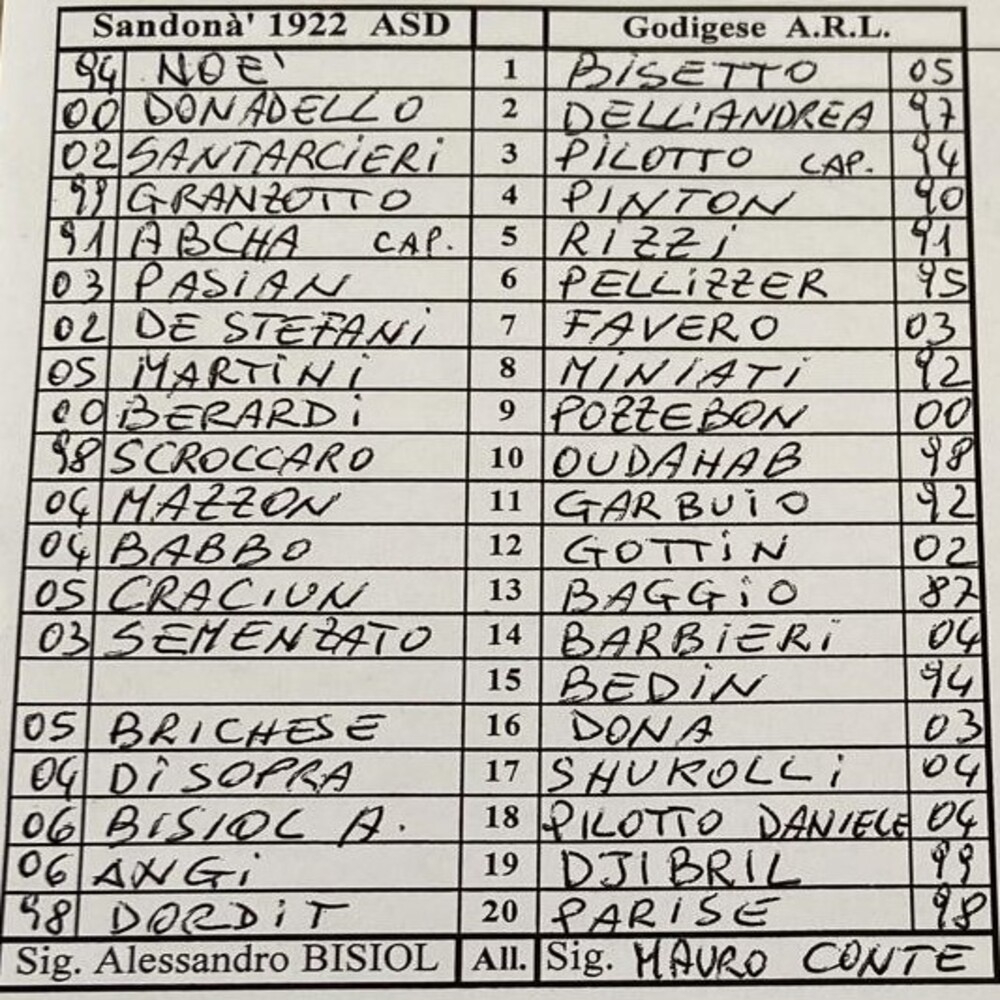 Sandonà' 1922 ASD Godigese A.R.L.
94 NOE' 1 BISETTO 05
00 DONADELLO 2 DELL'ANDREA 97
02 SANTARCIERI 3 PILOTTO CAP. 94
99 GRANZOTTO 4 PINTON 90
91 ABCHA CAP. 5 RIZZI 91
03 PASIAN 6 PELLIZZER 95
02 DE STEFANI 7 FAVERO 03
05 MARTINI 8 MINIATI 92
00 BERARDI 9 POZZEBON 00
98 SCROCCARO 10 OUDAHAB 98
04 MAZZON 11 GARBUIO 92
04 BABBO 12 GOTTIN 02
05 CRACIUN 13 BAGGIO 87
03 SEMENZATO 14 BARBIERI 04
15 BEDIN 94
05 BRICHESE 16 DONA 03
04 DI SOPRA 17 SHUROLLI 04
06 BISIOL A. 18 PILOTTO DANIELE 04
06 ANGI 19 DJIBRIL 99
98 DORDIT 20 PARISE 98
Sig. Alessandro BISIOL All. Sig. MAURO CONTE